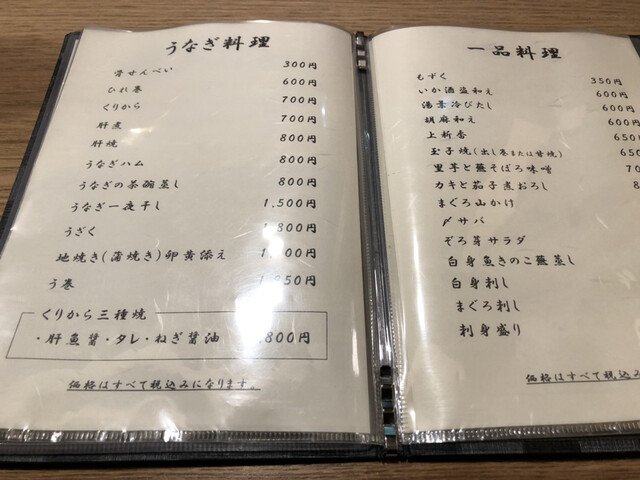 うなぎ料理
骨せんべい 300円
ひれ巻 600円
くりから 700円
肝煮 700円
肝焼 800円
うなぎハム 800円
うなぎの茶碗蒸し 800円
うなぎ一夜干し 1,500円
うざく 1,800円
地焼き(蒲焼き)卵黄添え
う巻
くりから三種焼
・肝魚醤・タレ・ねぎ醤油
価格はすべて税込みになります。
一品料理
もずく 350円
いか酒盗和え 600円
湯葉冷びたし 600円
胡麻和え 600円
上新香
玉子焼(出し巻または甘焼)
里芋と蕪そぼろ味噌
カキと茄子煮おろし
まぐろ山かけ
〆サバ
ぞろ芽サラダ
白身魚きのこ蕪蒸し
白身刺し
まぐろ刺し
刺身盛り
価格はすべて税込み